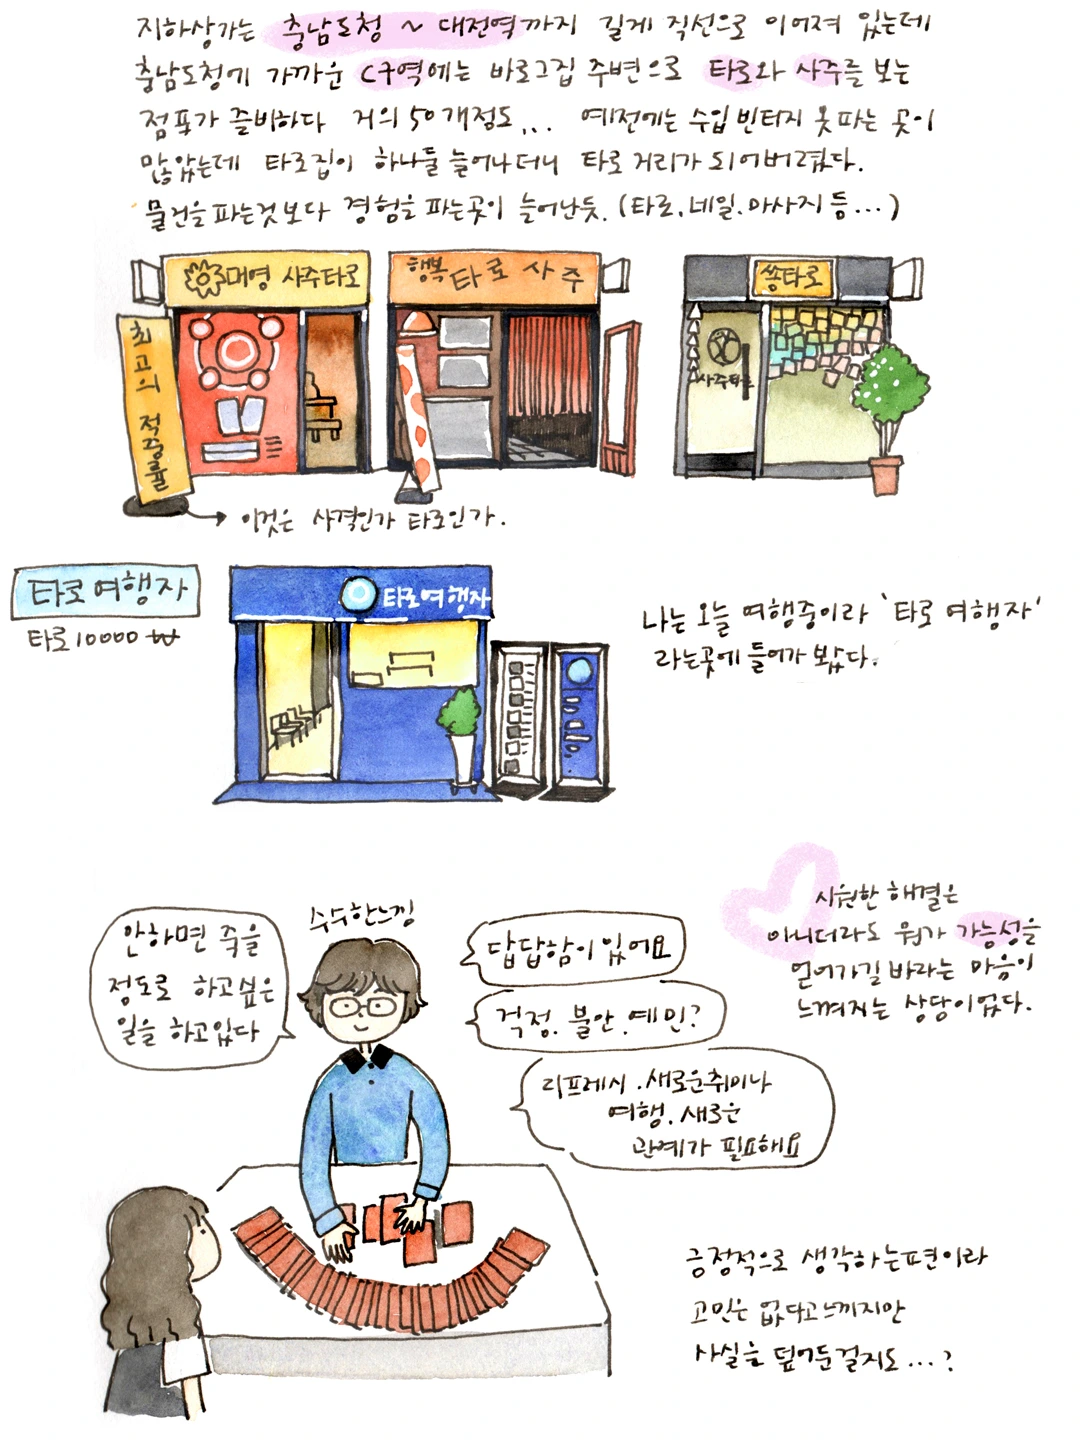 지하상가는 충남도청 ~ 대전역까지 길게 직선으로 이어져 있는데
충남도청에 가까운 C구역에는 바로그집 주변으로 타로와 사주를 보는
점포가 즐비하다 거의 50개정도... 예전에는 수입 빈티지 옷 파는 곳이
많았는데 타로집이 하나둘 늘어나더니 타로 거리가 되어버렸다.
물건을 파는것보다 경험을 파는곳이 늘어난듯. (타로, 네일, 마사지 등...)
매영 사주타로
행복 타로 사주
쏭타로
최고의 적중률
사주타로
이것은 사격인가 타로인가.
타로여행자
타로 10000 ₩
타로여행자
나는 오늘 여행중이라 '타로 여행자'
라는곳에 들어가 봤다.
시원한 해결은
아니더라도 뭔가 가능성을
얻어가길 바라는 마음이
느껴지는 상담이었다.
수수한느낌
안하면 죽을
정도로 하고싶은
일을 하고있다
답답함이 있어요
걱정. 불안. 예민?
리프레시. 새로운취미나
여행. 새로운
관계가 필요해요
긍정적으로 생각하는편이라
고민은 없다고느끼지만
사실을 덮어둔걸지도...?